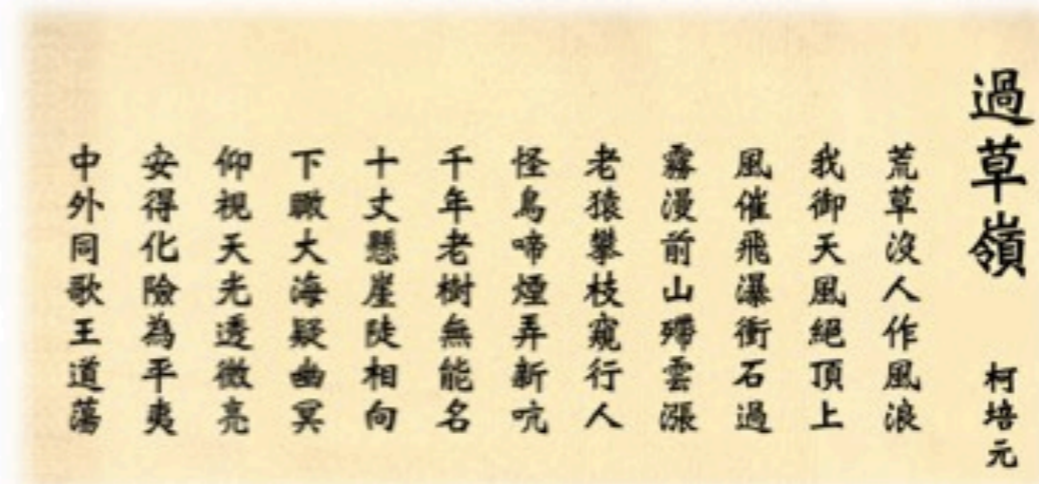 過草嶺
柯培元
荒草沒人作風浪
我御天風絕頂上
風催飛瀑衝石過
霧漫前山殢雲漲
老猿攀枝窺行人
怪鳥啼煙弄新吭
千年老樹無能名
十丈懸崖陡相向
下瞰大海疑幽冥
仰視天光透微亮
安得化險為平夷
中外同歌王道蕩